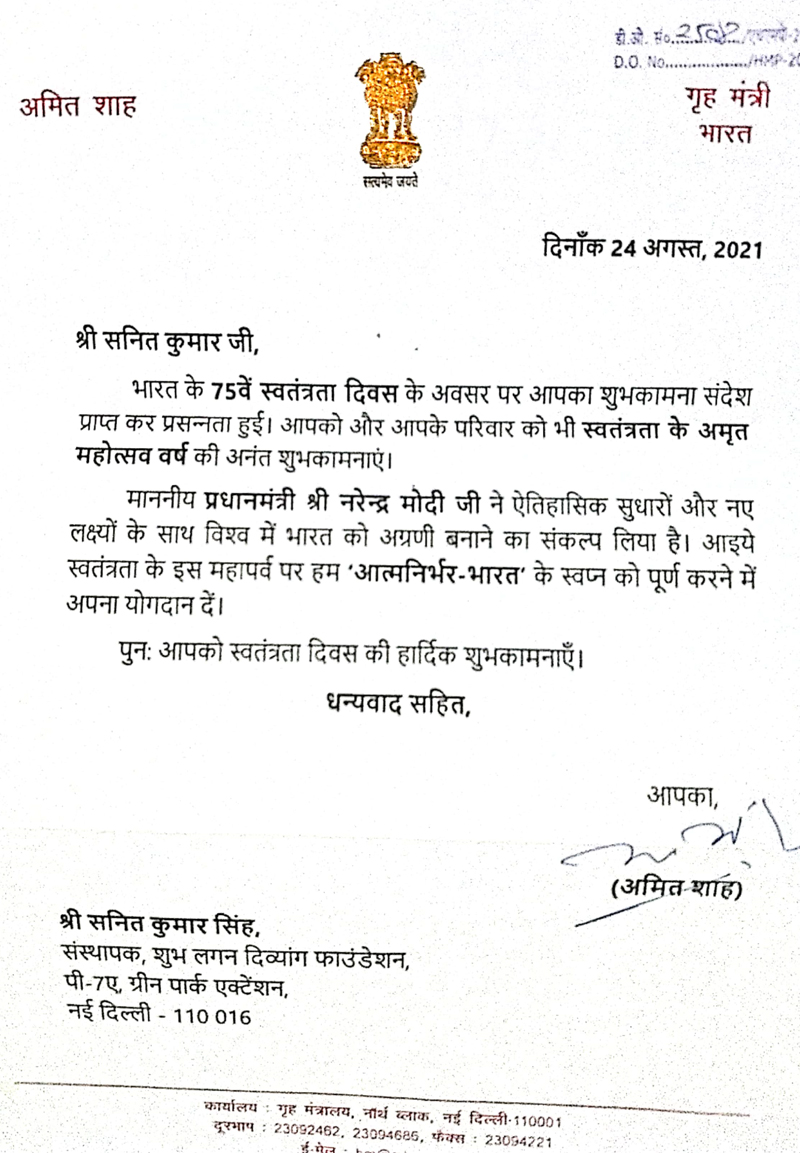 डी.ओ. सं.
D.O. No.................../HMP-20
अमित शाह
गृह मंत्री
भारत
सत्यमेव जयते
दिनाँक 24 अगस्त, 2021
श्री सनित कुमार जी,
भारत के 75वें स्वतंत्रता दिवस के अवसर पर आपका शुभकामना संदेश
प्राप्त कर प्रसन्नता हुई। आपको और आपके परिवार को भी स्वतंत्रता के अमृत
महोत्सव वर्ष की अनंत शुभकामनाएं।
माननीय प्रधानमंत्री श्री नरेन्द्र मोदी जी ने ऐतिहासिक सुधारों और नए
लक्ष्यों के साथ विश्व में भारत को अग्रणी बनाने का संकल्प लिया है। आइये
स्वतंत्रता के इस महापर्व पर हम ‘आत्मनिर्भर-भारत’ के स्वप्न को पूर्ण करने में
अपना योगदान दें।
पुन: आपको स्वतंत्रता दिवस की हार्दिक शुभकामनाएँ।
धन्यवाद सहित,
आपका,
(अमित शाह)
श्री सनित कुमार सिंह,
संस्थापक, शुभ लगन दिव्यांग फाउंडेशन,
पी-7ए, ग्रीन पार्क एक्टेंशन,
नई दिल्ली - 110 016
कार्यालय : गृह मंत्रालय, नॉर्थ ब्लाक, नई दिल्ली-110001
दूरभाष : 23092462, 23094686, फैक्स : 23094221
ई-मेल :